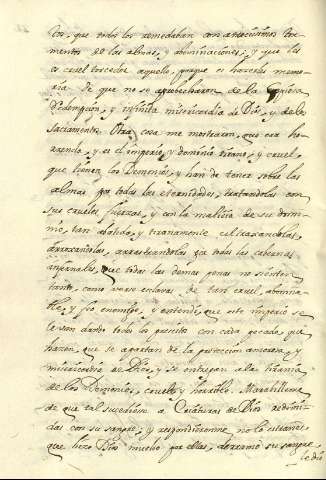 tos, que todos los remedaban con atrocissimos tor-
mentos de las almas, y abominaciones; y que les
es cruel torcedor aquello, porque es hacerles memo-
ria de que no se aprobecharon de la copiosa
Redempcion, y infinita misericordia de Dios, y de los
sacramentos. Otra cosa me mostraron, que era ho-
rrenda, y es el imperio, y dominio tirano, y cruel,
que tienen los Demonios, y han de tener sobre las
almas por todas las eternidades, tratandolas con
sus crueles fuerzas, y con la malicia de su domi-
nio, tan atroz, y tiranamente
arrojandolas, arrastrandolas por todas las cabernas
infernales, que todas las demas penas no sienten
tanto, como verse esclavas de tan cruel, abomina-
ble, y feo enemigo, y entendi, que este imperio se
le van dando todos los precitos con cada pecado, que
hacen, que se apartan de la proteccion amorosa, y
misericordia de Dios, y se entregan a la tirania
de los Demonios, cruel, y horrible. Marabilleme
de que tal sucediese a Criaturas de Dios redimi-
das con su sangre; y respondieronme no lo estrañes
que hizo Dios mucho por ellas, derramó su sangre,
le dió